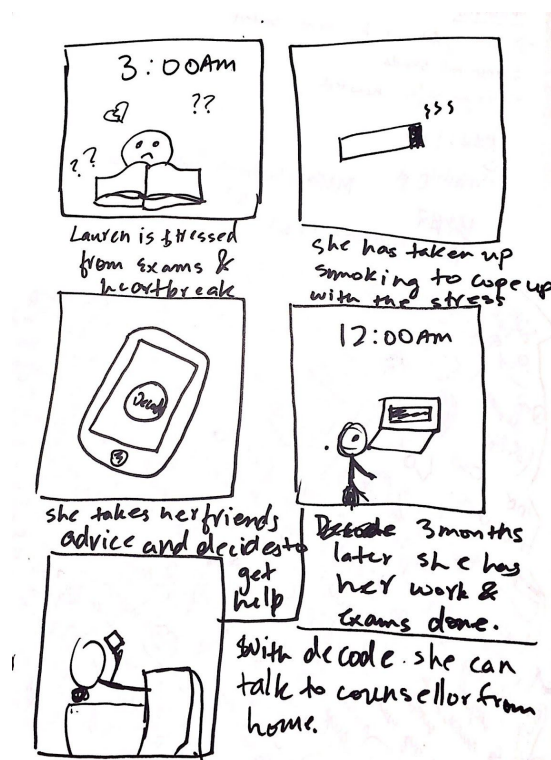 3:00AM
??
??
Lauren is stressed
from Exams &
heartbreak
she has taken up
smoking to cope up
with the stress
Decode
she takes her friends
advice and decides to
get
help
12:00AM
3 months
later she has
her work &
exams done.
with decode. she can
talk to counsellor from
home.